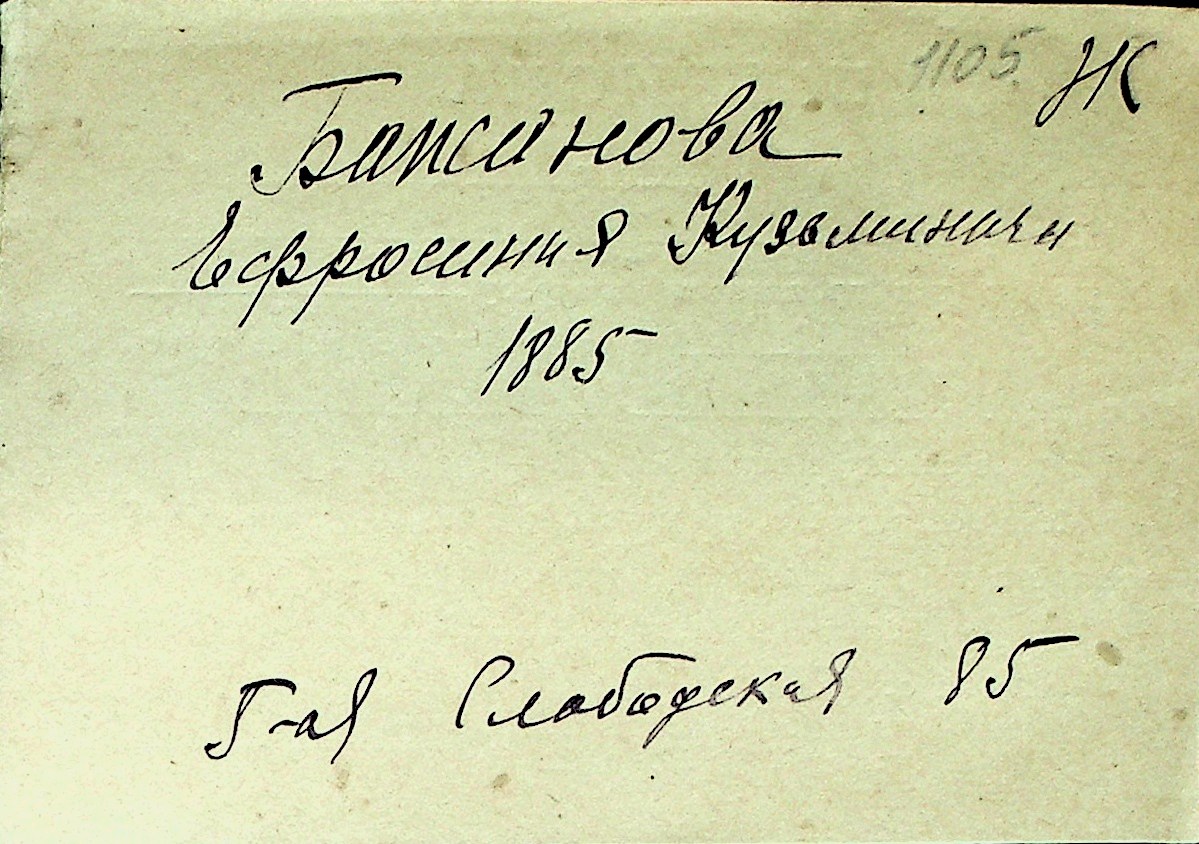 1105 Ж
Бажанова
Ефросиния Кузьминична
1885
5-ая Слободская 85